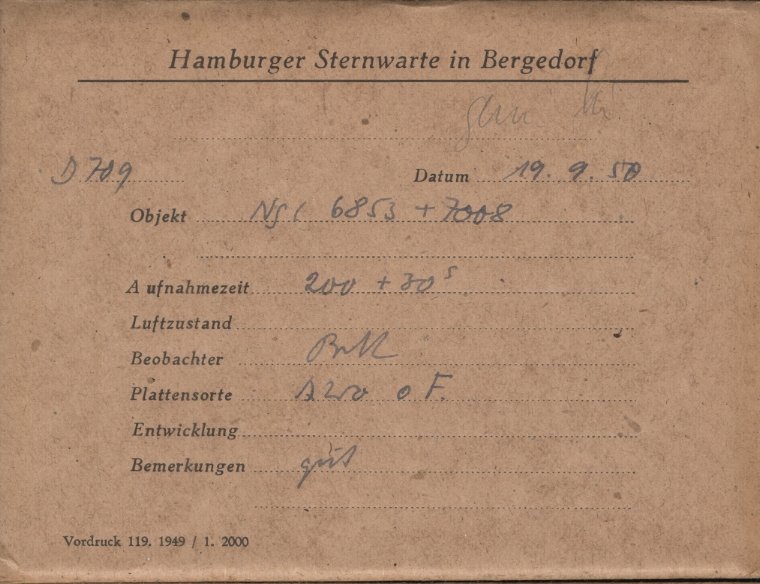 Hamburger Sternwarte in Bergedorf
D 709 Datum 19. 9. 50
Objekt NGC 6853 + 7008
Aufnahmezeit 200 + 30s
Luftzustand
Beobachter
Plattensorte o F.
Entwicklung
Bemerkungen gut
Vordruck 119. 1949 / 1. 2000